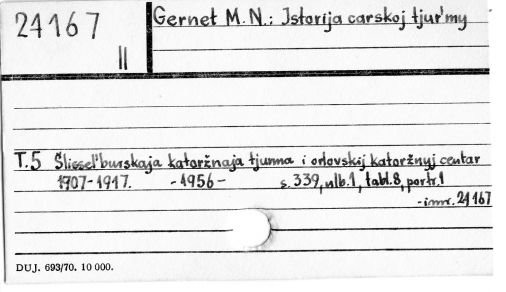 24167
II
Gernet M. N.: Istorija carskoj tjur'my
T.5 Šlissel'burskaja katoržnaja tjurma i orlovskij katoržnyj centar
1907-1917. -1956- s. 339, ulb. 1, tabl. 8, portr. 1
-inv. 24167
DUJ. 693/70. 10 000.